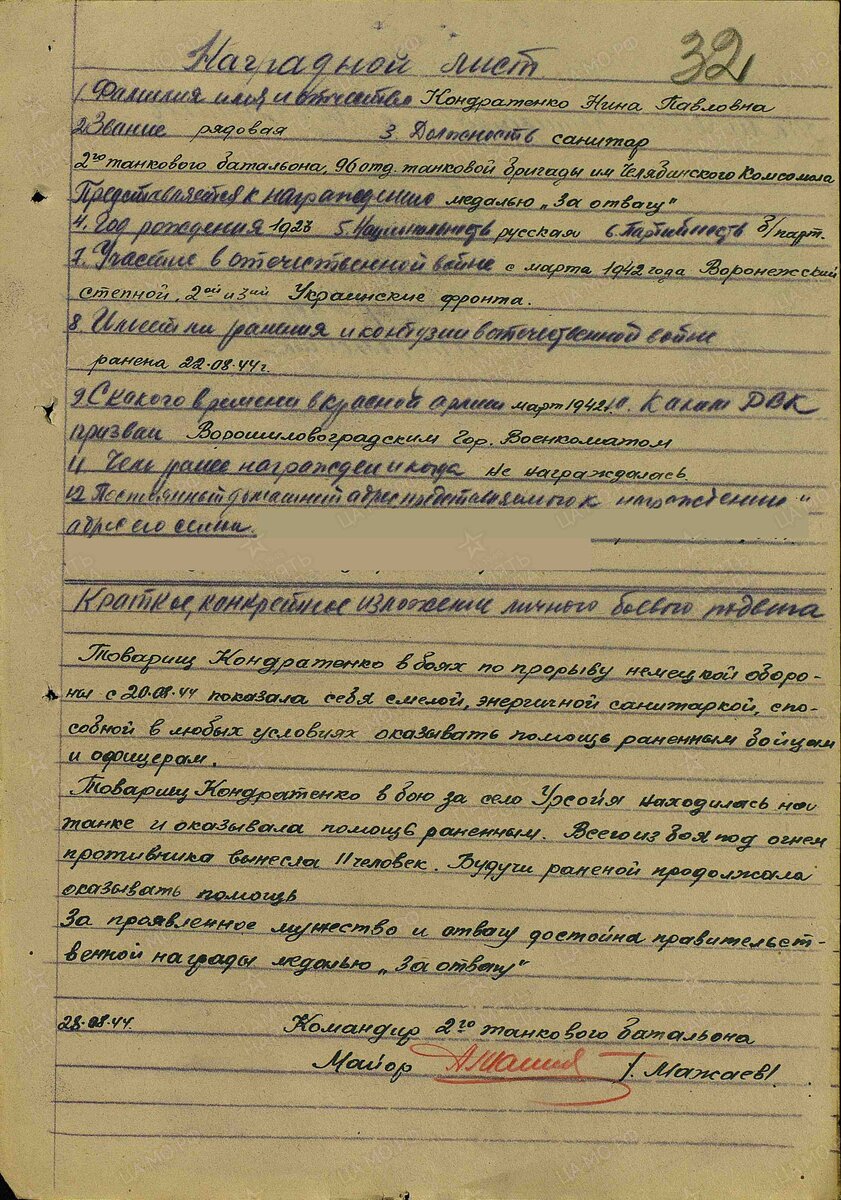 32
Наградной лист
1. Фамилия имя и отчество Кондратенко Нина Павловна
2. Звание рядовая 3. Должность санитар
2го танкового батальона, 96 отд. танковой бригады им Челябинского Комсомола
Представляется к награждению медалью „За отвагу"
4. Год рождения 1923 5. Национальность русская 6. Партийность б/парт.
7. Участие в отечественной войне с марта 1942 года Воронежский
степной, 2ой и 3ий Украинские фронта.
8. Имеет ли ранения и контузии в отечественной войне
ранена 22.08.44г.
9. С какого времени в красной армии март 1942г. 10. Каким РВК
призван Ворошиловоградским Гор. Военкоматом
11 Чем ранее награжден и когда не награждалась
12 Постоянный домашний адрес представляемого к награждению и
адрес его семьи.
Краткое, конкретное изложение личного боевого подвига
Товарищ Кондратенко в боях по прорыву немецкой оборо-
ны с 20.08.44 показала себя смелой, энергичной санитаркой, спо-
собной в любых условиях оказывать помощь раненным бойцам
и офицерам.
Товарищ Кондратенко в бою за село Урсойя находилась на
танке и оказывала помощь раненным. Всего из боя под огнем
противника вынесла 11 человек. Будучи раненой продолжала
оказывать помощь
За проявленное мужество и отвагу достойна правительст-
венной награды медалью „За отвагу"
28.08.44. Командир 2го танкового батальона
Майор /. Мажаев/.